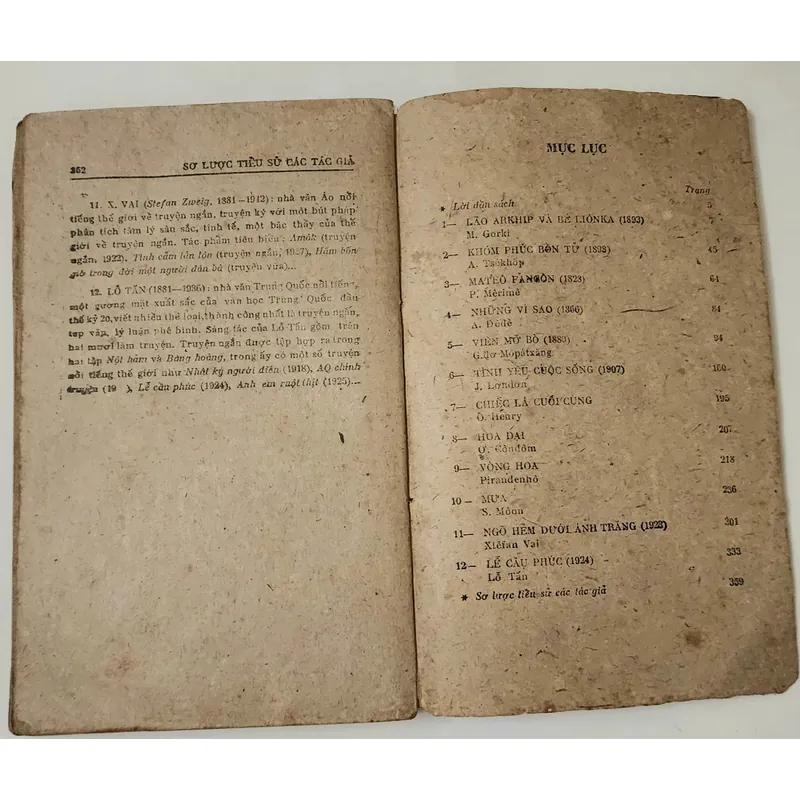 362 SƠ LƯỢC TIỂU SỬ CÁC TÁC GIẢ
11. X. VAI (Stefan Zweig, 1881–1942): nhà văn Áo nổi
tiếng thế giới về truyện ngắn, truyện ký với một bút pháp
phân tích tâm lý sâu sắc, tinh tế, một bậc thầy của thế
giới về truyện ngắn. Tác phẩm tiêu biểu: Amôk (truyện
ngắn, 1922), Tình cảm lẫn lộn (truyện ngắn, 1927), Hăm bốn
giờ trong đời một người đàn bà (truyện vừa)...
12. LỖ TẤN (1881–1936): nhà văn Trung Quốc nổi tiếng,
một gương mặt xuất sắc của văn học Trung Quốc đầu
thế kỷ 20, viết nhiều thể loại, thành công nhất là truyện ngắn,
tạp văn, lý luận phê bình. Sáng tác của Lỗ Tấn gồm trên
hai mươi lăm truyện. Truyện ngắn được tập hợp ra trong
hai tập Nột hàm và Bàng hoàng, trong ấy có một số truyện
nổi tiếng thế giới như Nhật ký người điên (1918), AQ chính
truyện (19 ), Lễ cầu phúc (1924), Anh em ruột thịt (1925)...
MỤC LỤC
Trang
* Lời dẫn sách 5
1— LÃO ARKHIP VÀ BÉ LIÔNKA (1893) 7
M. Gorki
2— KHÓM PHÚC BỒN TỬ (1898) 45
A. Tsêkhôp
3— MATÊÔ FANGÔN (1823) 64
P. Mêrimê
4— NHỮNG VÌ SAO (1866) 84
A. Đôđê
5— VIÊN MỠ BÒ (1880) 94
G.đơ Môpatxăng
6— TÌNH YÊU CUỘC SỐNG (1907) 160
J. Lơnđơn
7— CHIẾC LÁ CUỐI CÙNG 195
Ô. Henry
8— HOA DẠI 207
Ơ. Cônđôm
9— VÒNG HOA 218
Pirandenhô
10— MƯA 236
S. Môôn
11— NGÕ HẺM DƯỚI ÁNH TRĂNG (1922) 301
Xtêfan Vai
12— LỄ CẦU PHÚC (1924) 333
Lỗ Tấn
* Sơ lược tiểu sử các tác giả 359